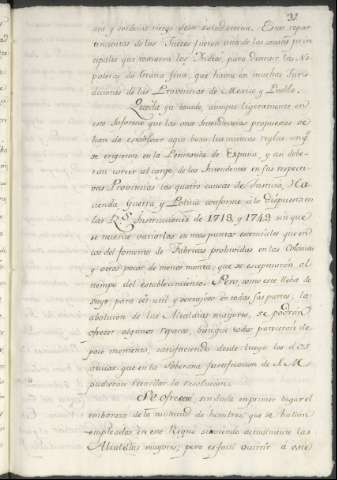 31
Estos repar
timientos de los Jueces fueron una de las causas prin
cipales que tomaron los Indios, para destruir las No
paleras de Grana fina, que havia en muchas Juris
dicciones de las Provincias de Mexico y Puebla.
Queda ya tocado, aunque ligeramente en
este Informe que las once Intendencias propuestas se
han de establecer aqui bajo las mismas reglas
se erigieron en la Peninsula de España, y que debe
ran correr al cargo de los Intendentes en sus respecti
vas Provincias las quatro causas de Justicia, Ha
cienda, Guerra, y Policia conforme a lo dispuesto en
las Rs Instrucciones de 1718, y 1749 sin que
se necesite variarlas en mas puntos esenciales que en
el del fomento de Fabricas prohividas en las Colonias
y otros pocos de menor monta, que se exceptuarán al
tiempo del establecimiento. Pero como este ha de
para ser util y ventajoso en todas sus partes, la
abolicion de las Alcaldias mayores, se podrán
ofrecer algunos reparos, bien que todos parezcan de
poco momento, satisfaciendo desde luego los
que en la Soberana Justificacion de S. M.
pudieran retardar la resolucion.
Se ofrece, sin duda en primer lugar el
embarazo de la multitud de hombres que se hallan
empleados en este Reyno sirviendo actualmente las
Alcaldias mayores; pero es facil ocurrir a este